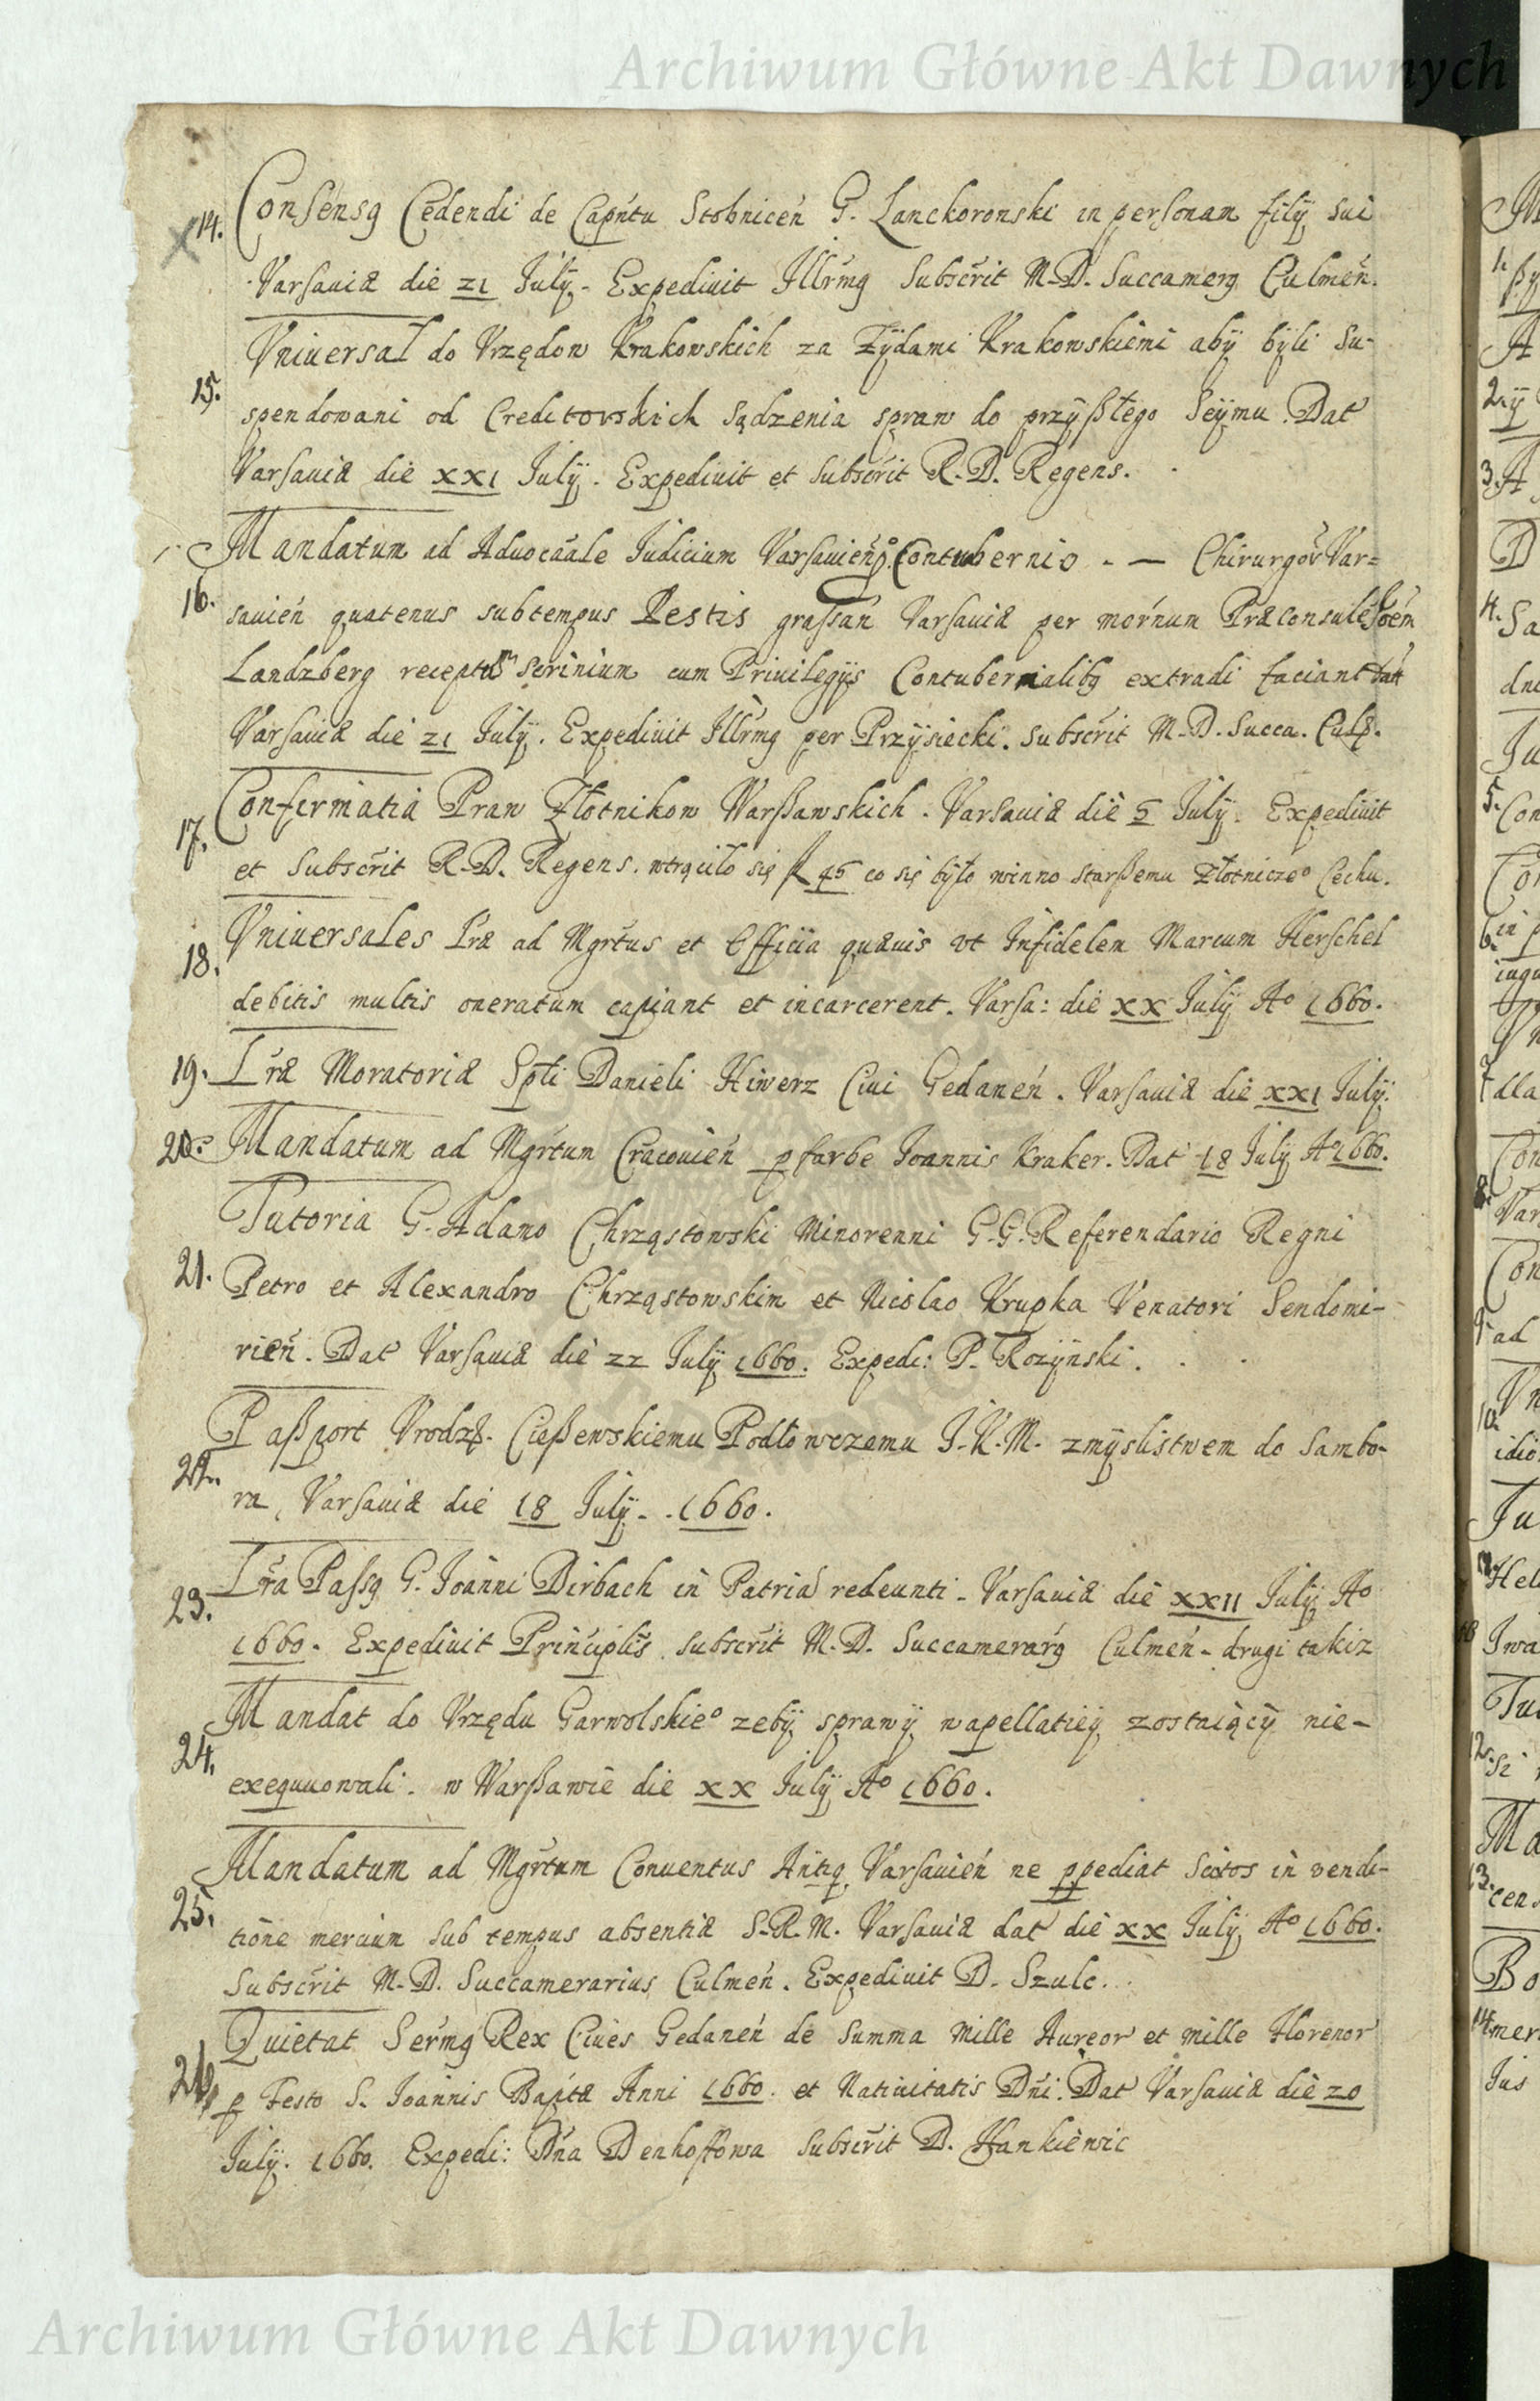 Archiwum Główne Akt Dawnych
14. Consensg Cedendi de Capńtu Stobniceń G. Lanckoronski in personam filÿ sui
Varsauiæ die 21 Julÿ. Expediuit Illrmg Subscrit M.D. Succamerg Culmeń.
Vniuersal do Vrzędow Krakowskich za Zÿdami Krakowskiemi abÿ bÿli su-
15.
spendowani od Creditorskich sądzenia spraw do przÿßłego Seÿmu. Dat
Varsauiæ die XXI Julÿ. Expediuit et subscrit R.D. Regens.
Mandatum ad Aduocãale Iudicium Varsauień Contubernio - — Chirurgor Var=
16.
sauień quatenus sub tempus Pestis grassań Varsauiæ per Præconsule
Landzberg receptu scrinium cum Priuilegÿs Contubernialibg extradi faciant dat
Varsauiæ die 21 Julÿ. Expediuit Illrmg per Przÿsiecki. Subscrit M.D. Succa. Cul.
Confirmatia Praw Złotnikow Warßawskich. Varsauiæ die 5 Julÿ. Expediuit
17.
et Subscrit R.D. Regens. wtrąciło się f 45 co się bÿło winno starßemu Złotniczeo Cechu.
Vniuersales Lræ ad Mgrtus et Officia quæuis vt Infidelem Marcum Herschel
18.
debitis multis oneratum capiant et incarcerent. Varsa: die XX Julÿ Ao 1660.
19. Lræ Moratoriæ Spti Danieli Hiwerz Ciui Gedaneń. Varsauiæ die XXI Julÿ.
20. Mandatum ad Mgrtum Cracouień p farbe Ioannis Kraker. Dat 18 Julÿ Ao 1660.
Tutoria G. Adamo Chrząstowski Minorenni G.G. Referendario Regni
21.
Petro et Alexandro Chrząstowskim et Nicolao Krupka Venatori Sendomi-
rień. Dat Varsauiæ die 22 Julÿ 1660. Expedi: P. Rozÿnski.
Paßport Vrodz. Cießewskiemu Podłowczemu J.K.M. z mÿslistwem do Sambo-
22.
ra, Varsauiæ die 18 Julÿ. 1660.
Lra Passg G. Ioanni Dirbach in Patria redeunti. Varsauiæ die XXII Julÿ Ao
23.
1660. Expediuit Principlis. subscrit M.D. Succamerarg Culmeń. drugi takiz
Mandat do Vrzędu Garwolskieo zebÿ sprawÿ w apellatieÿ zostaiącÿ nie-
24.
exequuowali. w Warßawie die XX Julÿ Ao 1660.
Mandatum ad Mgrtum Conuentus Antiq Varsauień ne ppediat Scotos in vendi-
25.
tione mercium sub tempus absentiæ S.R.M. Varsauiæ dat die XX Julÿ Ao 1660.
Subscrit M.D. Succamerarius Culmeń. Expediuit D. Szulc.
Quietat Sermg Rex Ciues Gedaneń de summa mille Aureor et mille Florenor
26.
p Festo S. Ioannis Baptæ Anni 1660. et Natiuitatis Dni. Dat Varsauiæ die 20
Julÿ. 1660. Expedi: Dna Denhoffowa Subscrit D. Hankiewic
Archiwum Główne Akt Dawnych